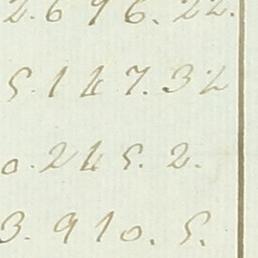 2.696.22.
5.147.32
0.245.2.
3.910.5.